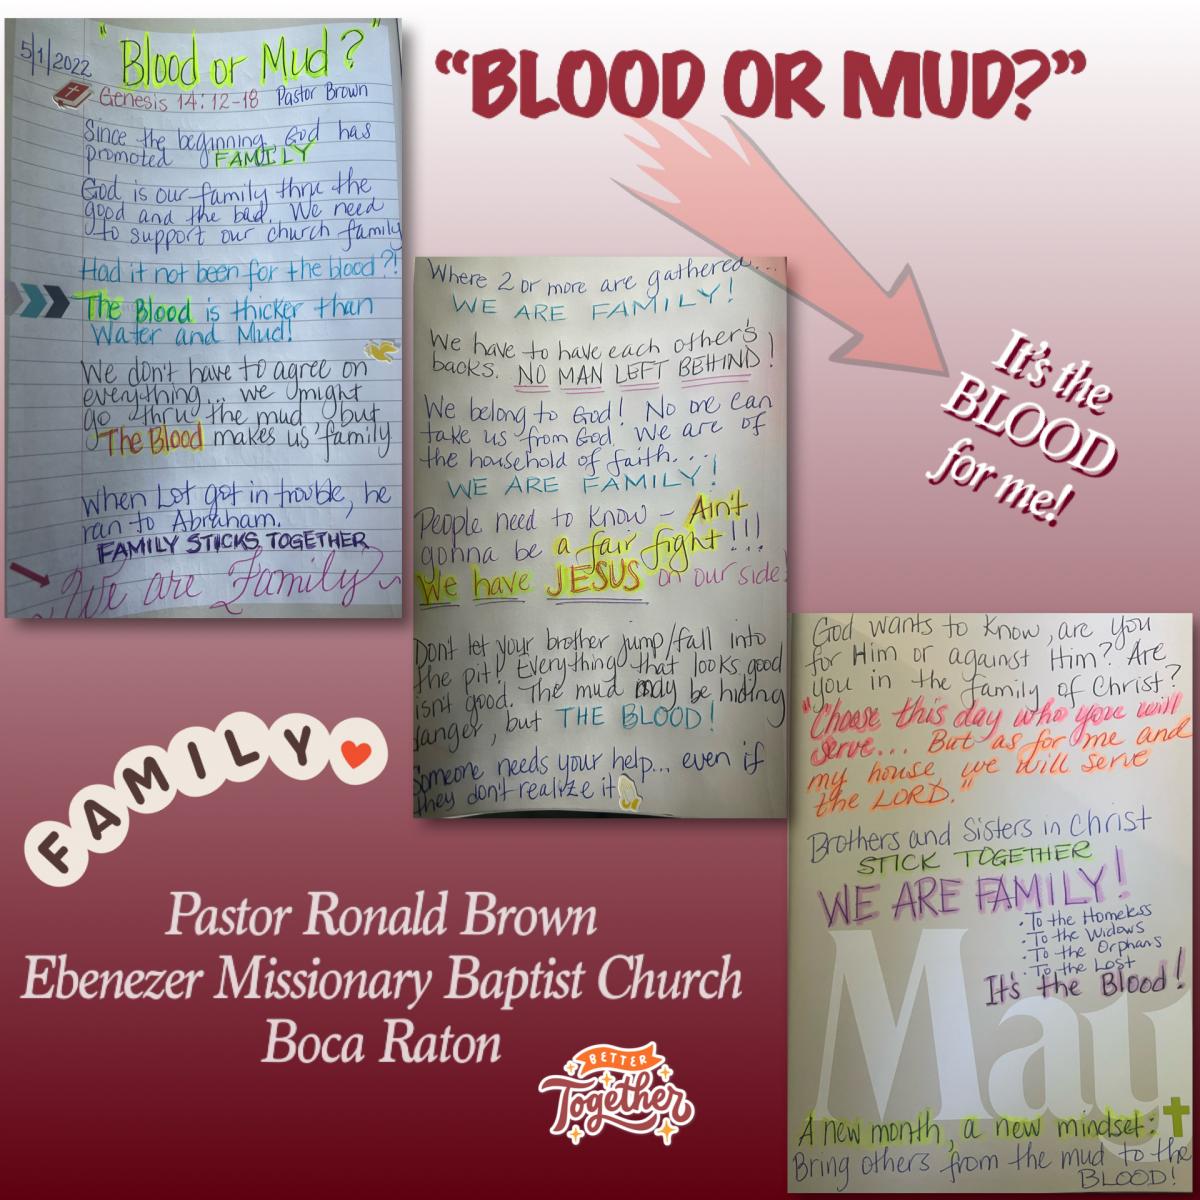 5/1/2022
"Blood or Mud?"
Genesis 14:12-18 Pastor Brown
Since the beginning, God has
promoted FAMILY
God is our family thru the
good and the bad. We need
to support our church family
Had it not been for the blood?!
The Blood is thicker than
Water and Mud!
We don't have to agree on
everything... we might
go thru the mud but
The Blood makes us family
When Lot got in trouble, he
ran to Abraham.
FAMILY STICKS TOGETHER
We are Family
"BLOOD OR MUD?"
It's the
BLOOD
for me!
Where 2 or more are gathered...
WE ARE FAMILY!
We have to have each other's
backs. NO MAN LEFT BEHIND!
We belong to God! No one can
take us from God. We are of
the household of faith...
WE ARE FAMILY!
People need to know - Ain't
gonna be a fair fight!!!
We have JESUS on our side!
Don't let your brother jump/fall into
the pit! Everything that looks good
isn't good. The mud may be hiding
danger, but THE BLOOD!
Someone needs your help... even if
they don't realize it
God wants to know, are you
for Him or against Him? Are
you in the family of Christ?
"Choose this day who you will
serve... But as for me and
my house, we will serve
the LORD."
Brothers and Sisters in Christ
STICK TOGETHER
WE ARE FAMILY!
• To the Homeless
• To the Widows
• To the Orphans
• To the Lost
It's the Blood!
May
A new month, a new mindset:
Bring others from the mud to the
BLOOD!
FAMILY
Pastor Ronald Brown
Ebenezer Missionary Baptist Church
Boca Raton
BETTER
Together